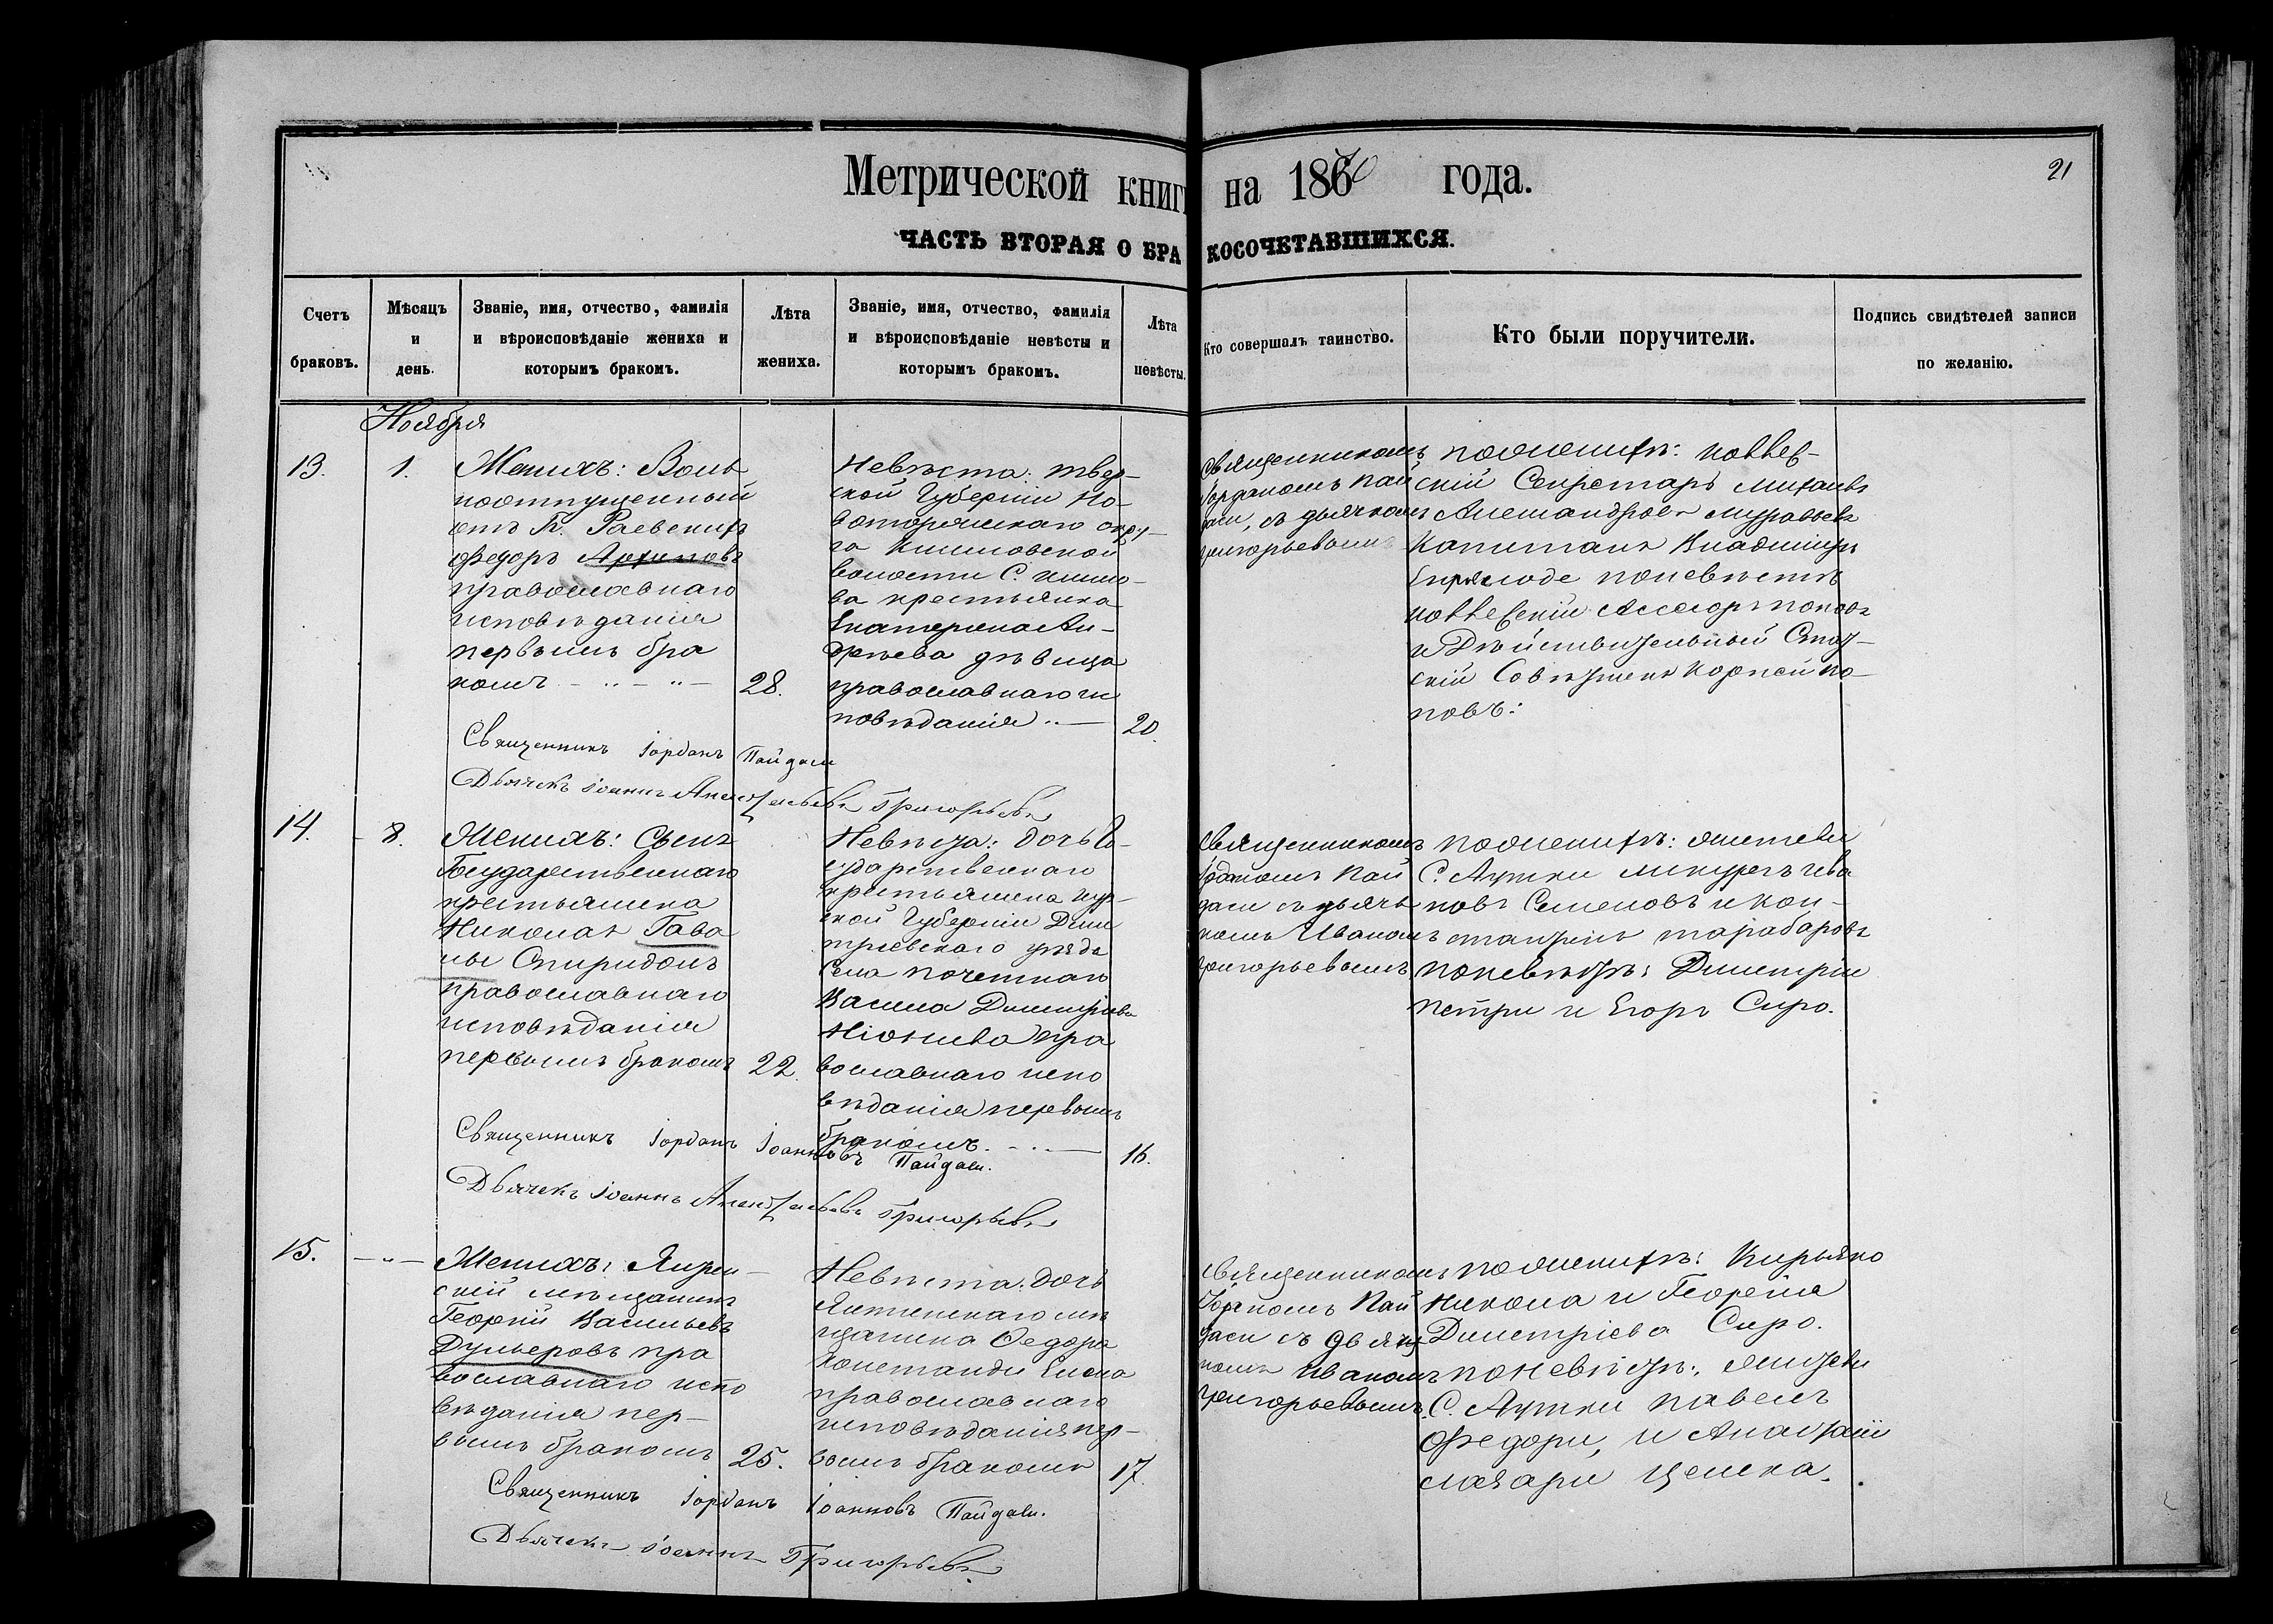 21
Метрической книги на 1860 года.
ЧАСТЬ ВТОРАЯ О БРАКОСОЧЕТАВШИХСЯ.
Счетъ браковъ.
Мѣсяцъ и день.
Званіе, имя, отчество, фамилія
и вѣроисповѣданіе жениха и
которымъ бракомъ.
Лѣта жениха.
Званіе, имя, отчество, фамилія
и вѣроисповѣданіе невѣсты и
которымъ бракомъ.
Лѣта невѣсты.
Кто совершалъ таинство.
Кто были поручители.
Подпись свидѣтелей записи
по желанію.
Ноября
13.
1.
Женихъ: Воль
ноотпущенный
отъ Г. Раевскихъ
Федоръ
православнаго
исповѣданія
первымъ бра
комъ
28.
Невѣста: твер-
ской Губерніи Но-
воторжскаго окру-
га
волости С.
ва крестьянка
Екатерина Ан-
дреева дѣвица
православнаго ис
повѣданія
20.
Священникомъ
Іорданомъ Пай
даси, съ дьячкомъ
Григорьевымъ
по женихѣ: коллеж-
скій Секретарь Михаилъ
Александровъ Муравьевъ
Капитанъ Владиміръ
по невѣстѣ
коллежскій Ассесоръ Поповъ
и Дѣйствительный Стат-
скій Совѣтникъ Корней По-
повъ:
Священникъ Іорданъ Пайдаси
Дьячекъ Іоаннъ Григорьевъ
14.
8.
Женихъ: Сынъ
Государственнаго
крестьянина
Николая Гава
лы Спиридонъ
православнаго
исповѣданія
первымъ бракомъ
22.
Невѣста: дочь Го-
сударственнаго
крестьянина Кур-
ской Губерніи Дми
тріевскаго уѣзда
Села
Димитріева
пра
вославнаго испо
вѣданія первымъ
бракомъ.
16.
Священникомъ
Іорданомъ Пай
даси съ дьяч
комъ Иваномъ
Григорьевымъ
по женихѣ: жители
С. Аутки Ива
новъ Семеновъ и Кон-
стантинъ Тарабаровъ
по невѣстѣ: Димитрій
Петри и Егоръ Сиро.
Священникъ Іорданъ Іоанновъ Пайдаси.
Дьячекъ Іоаннъ Григорьевъ
15.
Женихъ:
скій мѣщанинъ
Георгій Васильевъ
Дульеровъ пра
вославнаго испо
вѣданія пер-
вымъ бракомъ
25.
Невѣста: дочь
Ялтинскаго мѣ
щанина Федора
Константи Елена
православнаго
исповѣданія пер-
вымъ бракомъ
17.
Священникомъ
Іорданомъ Пай
даси съ дьяч
комъ Иваномъ
Григорьевымъ
по женихѣ: Кирьяко
Никола и Георгія
Димитріева Сиро.
по невѣстѣ: жители
С. Аутки Павелъ
Федори, и Анастасій
Лазари
Священникъ Іорданъ Іоанновъ Пайдаси.
Дьячекъ Іоаннъ Григорьевъ